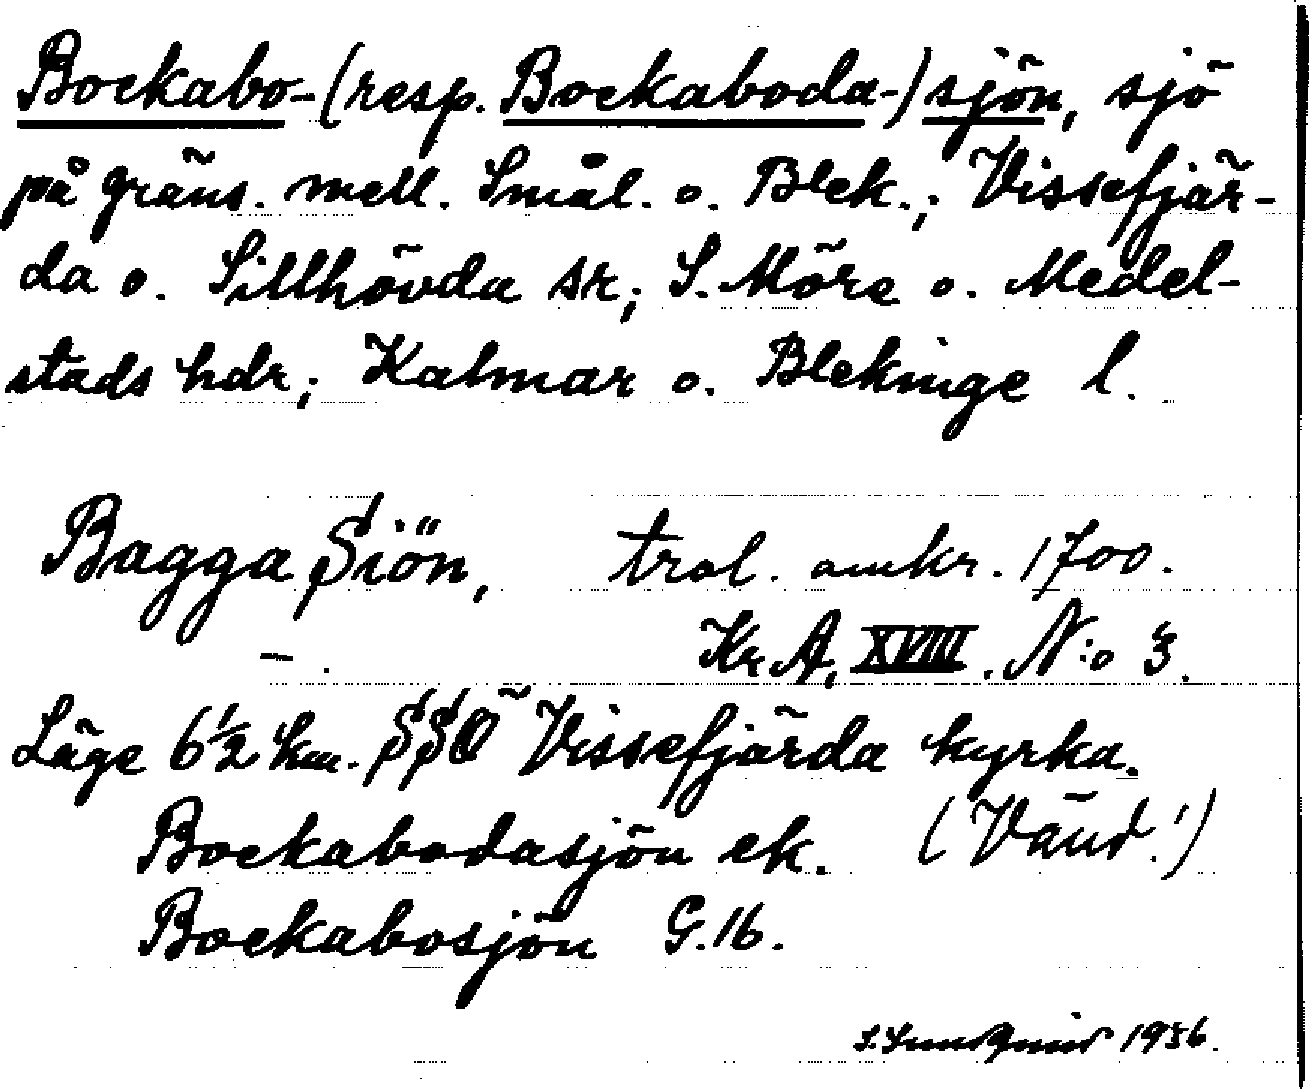 Bockabo-(resp. Bockaboda-)sjön, sjö
på gräns. mell. Smål. o. Blek.; Vissefjär-
da o. Sillhövda sr; S. Möre o. Medel-
stads hdr; Kalmar o. Blekinge l.
Bagga Siön, trol. omkr. 1700.
—. Kr A, XVIII. N:o 3.
Läge 6½ km. SSO Vissefjärda kyrka.
Bockabodasjön ek. (Vänd!)
Bockabosjön G.16.
S. Sundquist 1956.